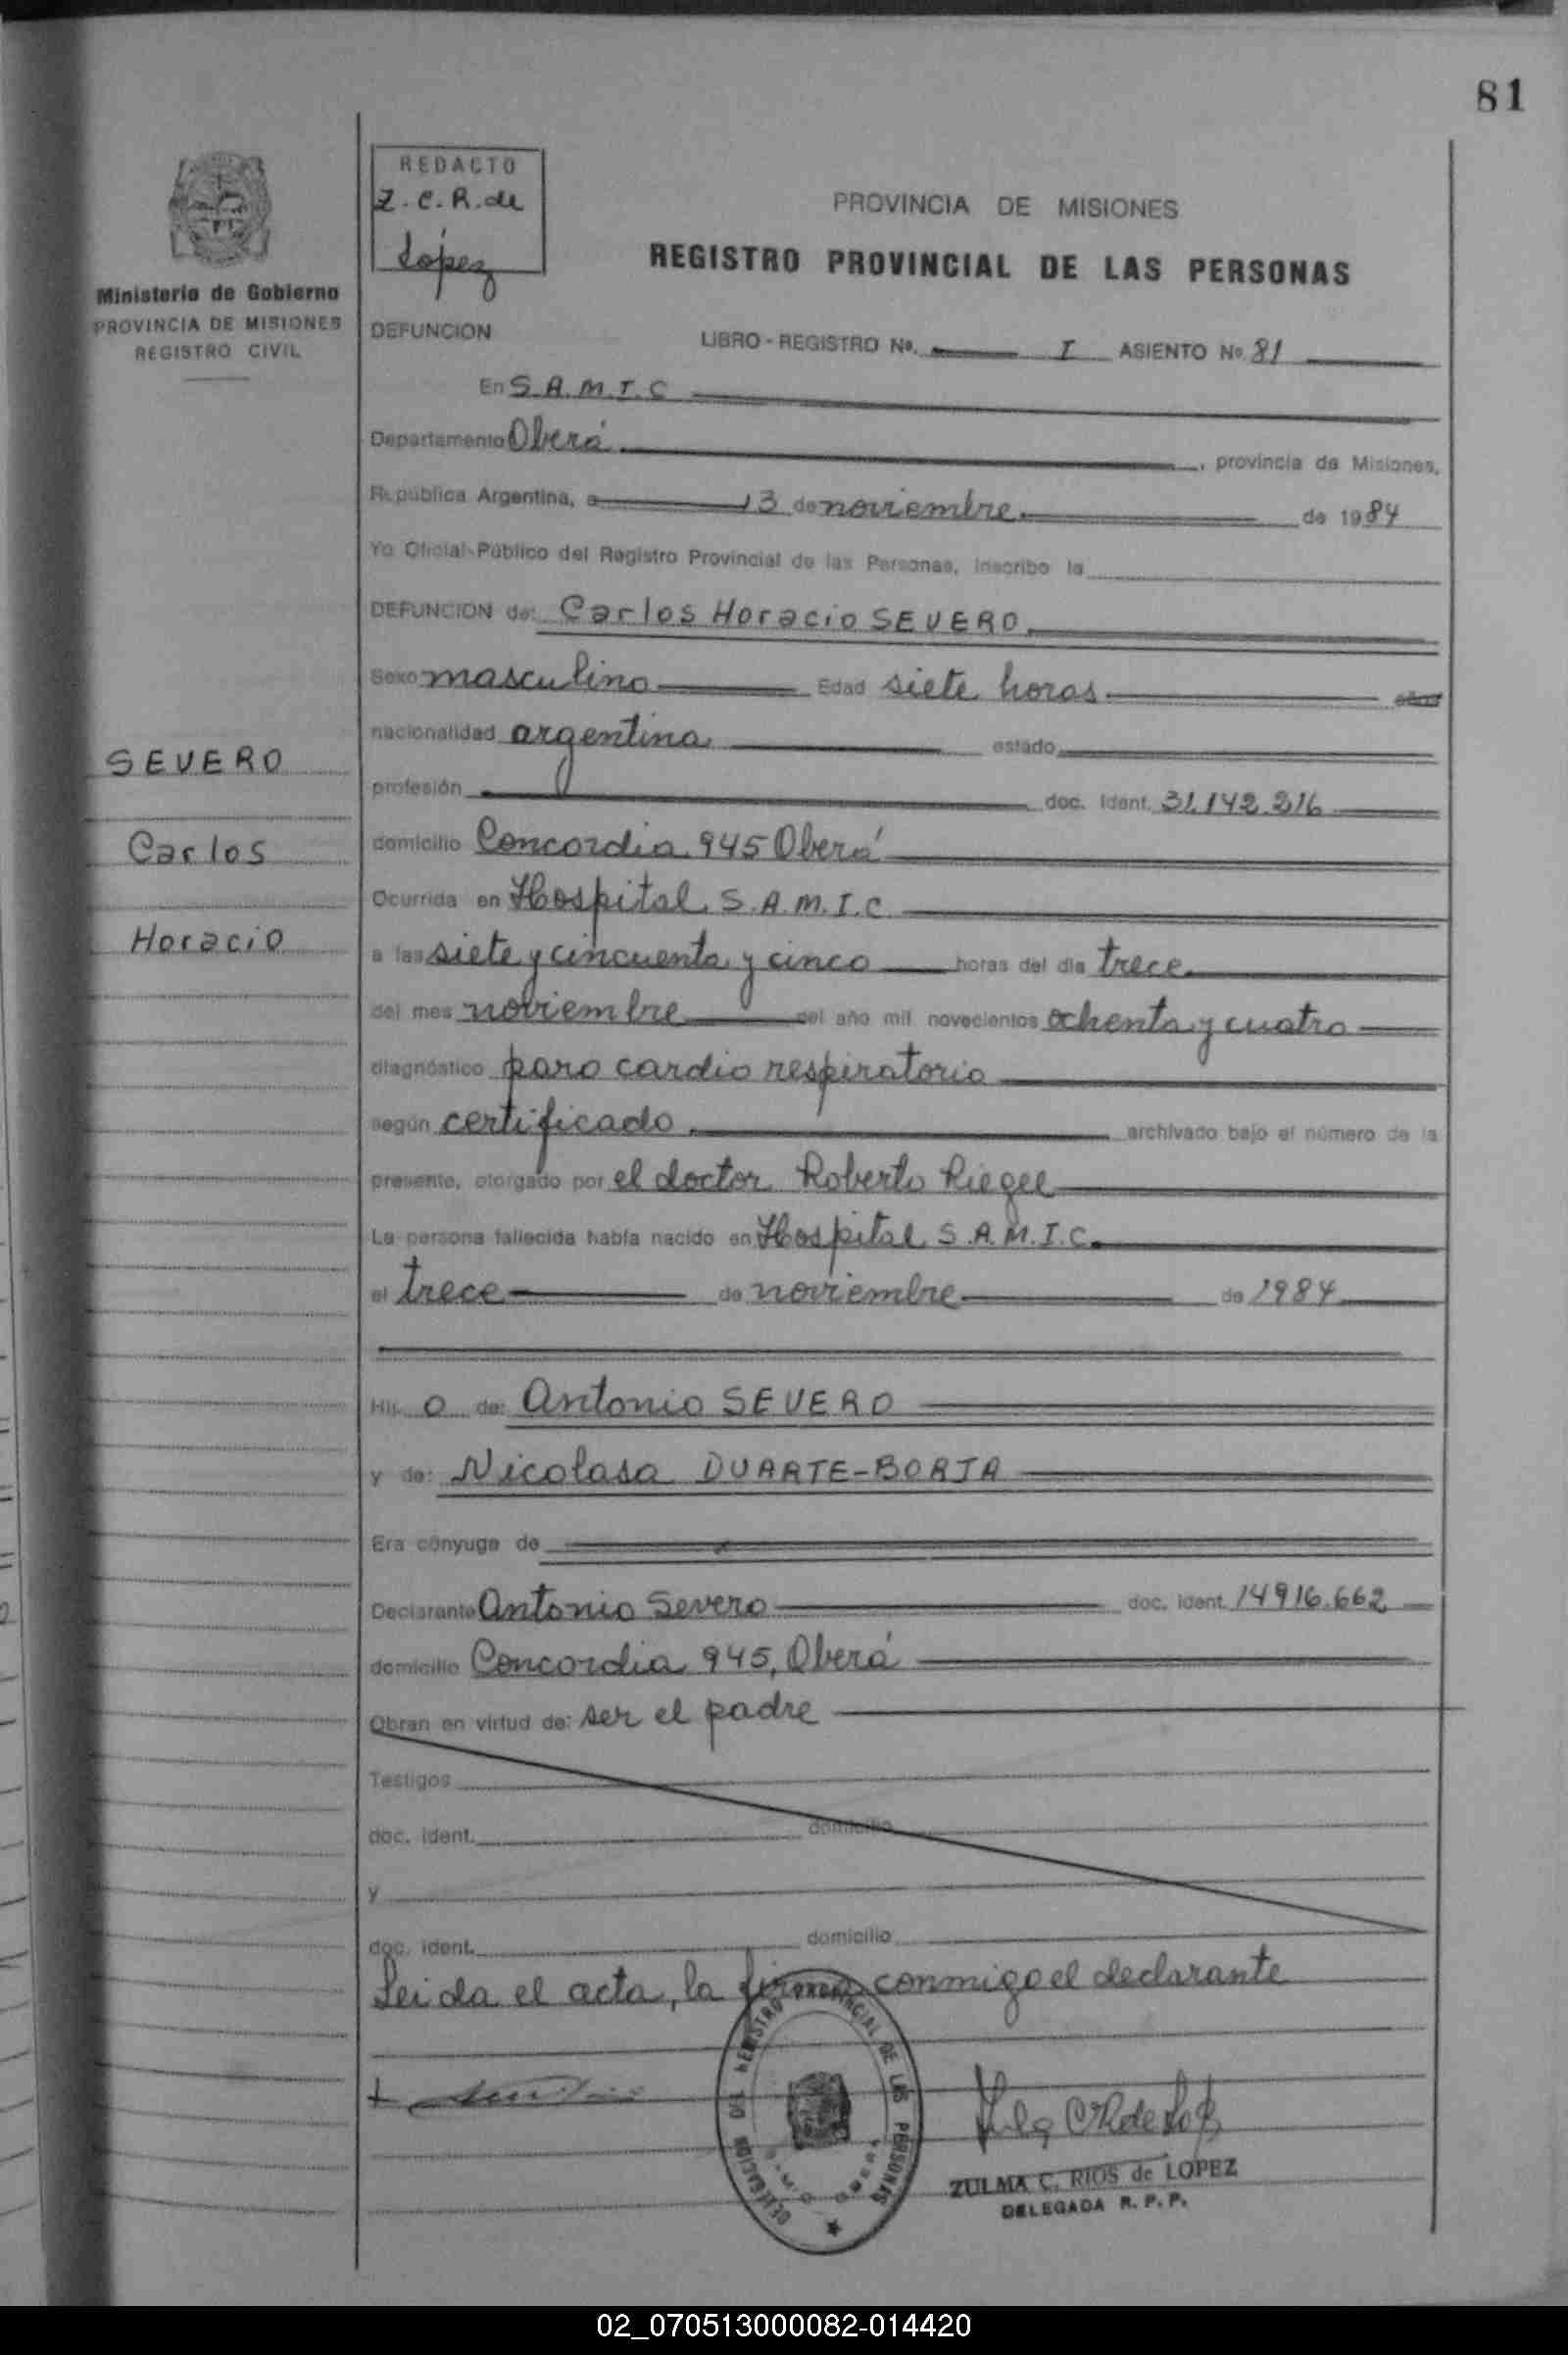 81
REDACTO
Z.C.R. de
López
Ministerio de Gobierno
PROVINCIA DE MISIONES
REGISTRO CIVIL
PROVINCIA DE MISIONES
REGISTRO PROVINCIAL DE LAS PERSONAS
DEFUNCION LIBRO - REGISTRO No. I ASIENTO No. 81
En S.A.M.I.C
Departamento Oberá, provincia de Misiones,
República Argentina, a 13 de noviembre de 1984
Yo Oficial Público del Registro Provincial de las Personas, inscribo la
DEFUNCION de: Carlos Horacio SEVERO
Sexo masculino Edad siete horas años
nacionalidad argentina estado
SEVERO
profesión doc. ident. 31.142.216
Carlos
domicilio Concordia 945 Oberá
Ocurrida en Hospital S.A.M.I.C
Horacio
a las siete y cincuenta y cinco horas del día trece
del mes noviembre del año mil novecientos ochenta y cuatro
diagnóstico paro cardio respiratorio
según certificado archivado bajo el número de la
presente, otorgado por el doctor Roberto
La persona fallecida había nacido en Hospital S.A.M.I.C.
el trece de noviembre de 1984
Hij o de: Antonio SEVERO
y de: Nicolasa DUARTE-BORJA
Era cónyuge de
Declarante Antonio Severo doc. ident. 14916.662
domicilio Concordia 945, Oberá
Obran en virtud de: ser el padre
Testigos
doc. ident. domicilio
y
doc. ident. domicilio
Leida el acta, la firma conmigo el declarante
DELEGACION DEL REGISTRO PROVINCIAL DE LAS PERSONAS
ZULMA C. RIOS de LOPEZ
DELEGADA R. P. P.
02_070513000082-014420